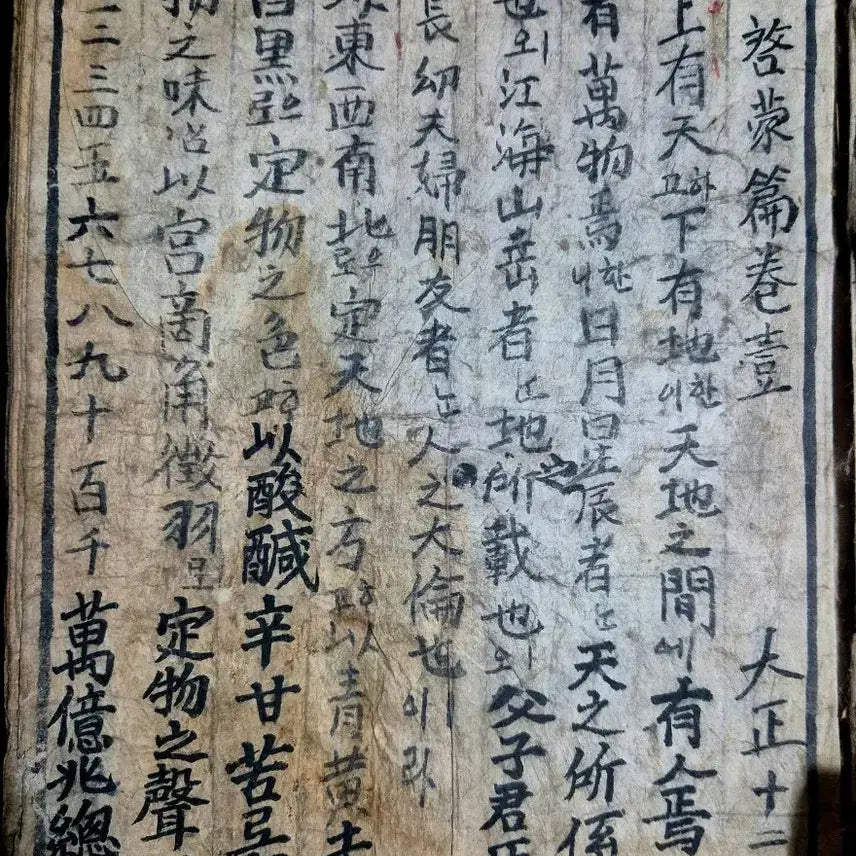 啓蒙篇卷壹 大正十二
上有天하고下有地한이天地之間에有人焉
有萬物焉한니日月星辰者는天之所係
也외江海山岳者는地之所載也외父子君臣
長幼夫婦朋友者는人之大倫也이라
以東西南北으로定天地之方하고以青黃赤
白黑으로定物之色하고以酸醎辛甘苦으로
物之味하고以宮商角徵羽로定物之聲
一二三四五六七八九十百千萬億兆總